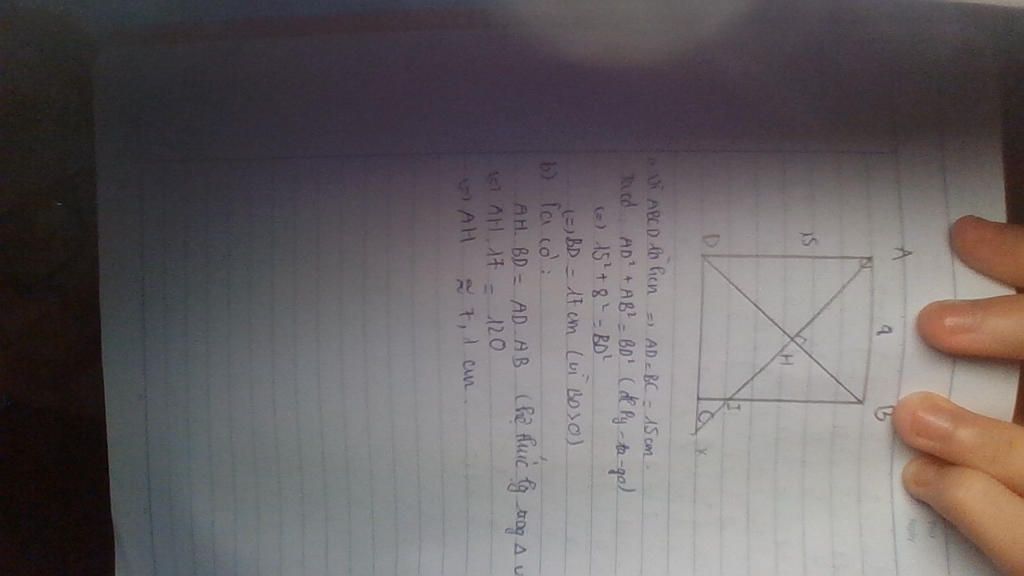 A 9 B
15
H
I
D C x
a) Vì ABCD là hcn => AD = BC = 15cm.
AD² + AB² = BD² (đl Py-ta-go)
(=) 15² + 8² = BD²
(=) BD = 17cm (vì BD>0)
b) Ta có :
AH. BD = AD. AB (hệ thức lg trog Δ v
<=> AH. 17 = 120
<=> AH ≈ 7,1 cm.